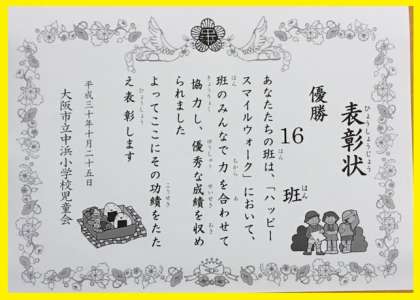 表彰状
ひょうしょうじょう
優勝
16班
はん
はん
あなたたちの班は、「ハッピー
スマイルウォーク」において、
班のみんなで力を合わせて
協力し、優秀な成績を収め
られました
よってここにその功績をたた
え表彰します
平成三十年十月二十五日
大阪市立中浜小学校児童会